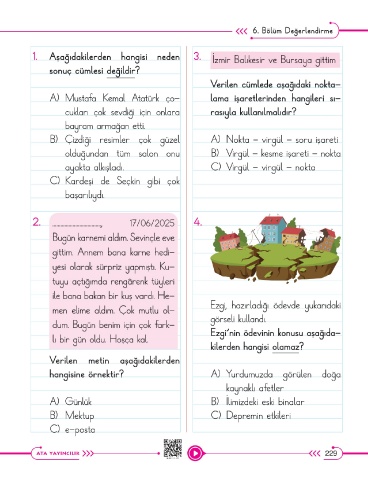 6. Bölüm Değerlendirme
1. Aşağıdakilerden hangisi neden
sonuç cümlesi değildir?
A) Mustafa Kemal Atatürk ço-
cukları çok sevdiği için onlara
bayram armağan etti.
B) Çizdiği resimler çok güzel
olduğundan tüm salon onu
ayakta alkışladı.
C) Kardeşi de Seçkin gibi çok
başarılıydı.
2. ............., 17/06/2025
Bugün karnemi aldım. Sevinçle eve
gittim. Annem bana karne hedi-
yesi olarak sürpriz yapmıştı. Ku-
tuyu açtığımda rengârenk tüyleri
ile bana bakan bir kuş vardı. He-
men elime aldım. Çok mutlu ol-
dum. Bugün benim için çok fark-
lı bir gün oldu. Hoşça kal.
Verilen metin aşağıdakilerden
hangisine örnektir?
A) Günlük
B) Mektup
C) e-posta
3. İzmir Balıkesir ve Bursaya gittim
Verilen cümlede aşağıdaki nokta-
lama işaretlerinden hangileri sı-
rasıyla kullanılmalıdır?
A) Nokta – virgül – soru işareti
B) Virgül – kesme işareti – nokta
C) Virgül – virgül – nokta
4.
Ezgi, hazırladığı ödevde yukarıdaki
görseli kullandı.
Ezgi'nin ödevinin konusu aşağıda-
kilerden hangisi olamaz?
A) Yurdumuzda görülen doğa
kaynaklı afetler
B) İlimizdeki eski binalar
C) Depremin etkileri
ATA YAYINCILIK
229